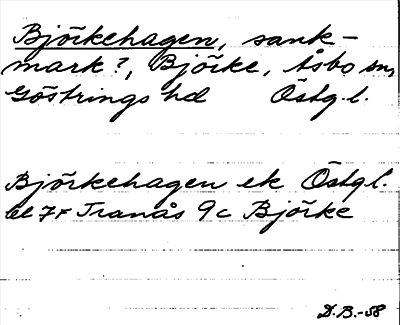 Björkehagen, sank-
mark?, Björke, Åsbo sn,
Göstrings hd Östg.l.
Björkehagen ek Östg.l.
bl 7F Tranås 9c Björke
D.B.-58